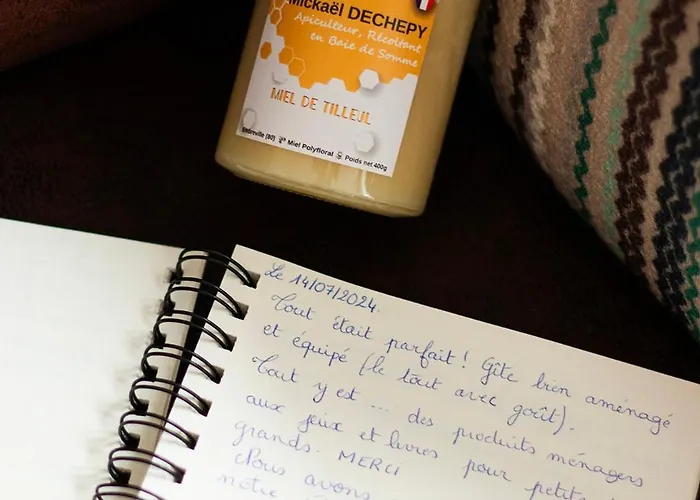 Mickaël DECHEPY
Apiculteur, Récoltant
en Baie de Somme
MIEL DE TILLEUL
(80) Miel Polyfloral Poids net 400g
Le 14/07/2024.
Tout était parfait ! Gîte bien aménagé
et équipé (le tout avec goût).
Tout y est ... des produits ménagers
aux jeux et livres pour petits
grands. MERCI
Nous avons
notre